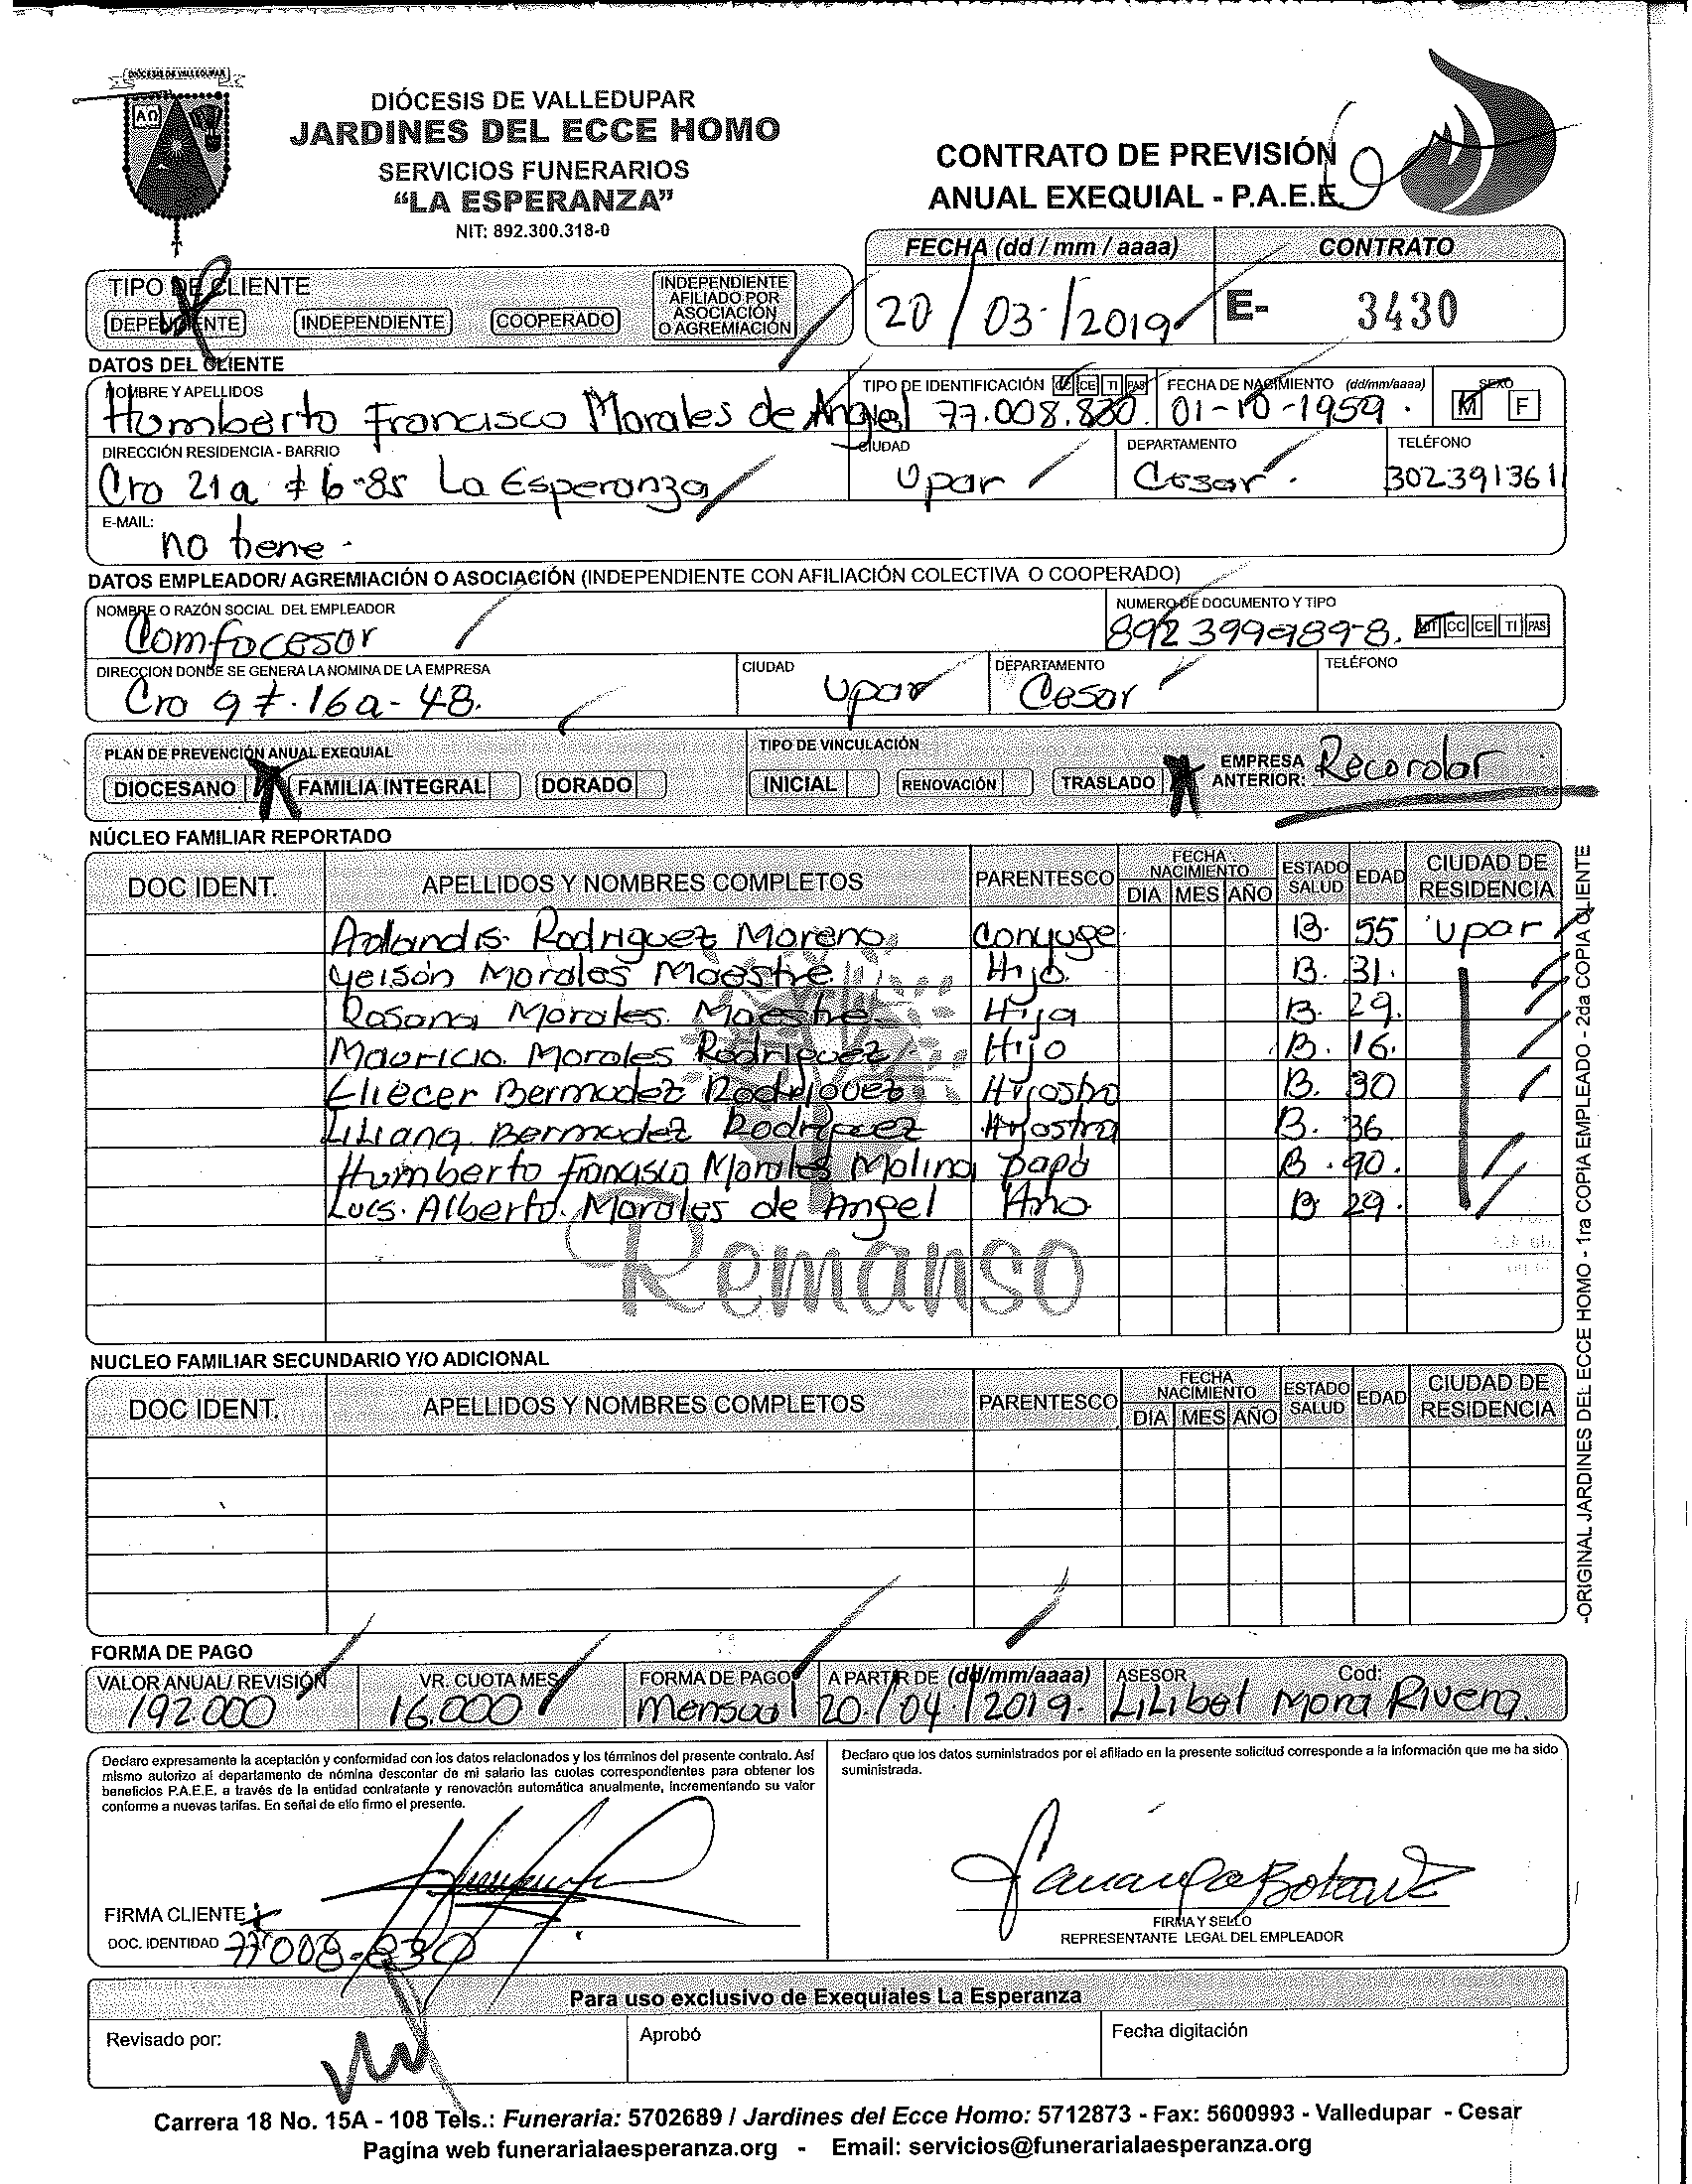 DIÓCESIS DE VALLEDUPAR
ΑΩ
DIÓCESIS DE VALLEDUPAR
JARDINES DEL ECCE HOMO
SERVICIOS FUNERARIOS
“LA ESPERANZA”
NIT: 892.300.318-0
CONTRATO DE PREVISIÓN
ANUAL EXEQUIAL - P.A.E.E.
FECHA (dd / mm / aaaa) CONTRATO
20 / 03 / 2019 E- 3430
TIPO DE CLIENTE
DEPENDIENTE INDEPENDIENTE COOPERADO INDEPENDIENTE AFILIADO POR ASOCIACIÓN O AGREMIACIÓN
DATOS DEL CLIENTE
NOMBRE Y APELLIDOS TIPO DE IDENTIFICACIÓN CC CE TI PAS FECHA DE NACIMIENTO (dd/mm/aaaa) SEXO
Humberto Francisco Morales de Angel 77.008.830. 01-10-1959. M F
DIRECCIÓN RESIDENCIA - BARRIO CIUDAD DEPARTAMENTO TELÉFONO
Cra 21a # 6-85 La Esperanza Upar Cesar. 3023913611
E-MAIL:
no tiene -
DATOS EMPLEADOR/ AGREMIACIÓN O ASOCIACIÓN (INDEPENDIENTE CON AFILIACIÓN COLECTIVA O COOPERADO)
NOMBRE O RAZÓN SOCIAL DEL EMPLEADOR NUMERO DE DOCUMENTO Y TIPO
Comfacesar 892399989-8. NIT CC CE TI PAS
DIRECCION DONDE SE GENERA LA NOMINA DE LA EMPRESA CIUDAD DEPARTAMENTO TELÉFONO
Cra 9 #. 16a - 48. Upar Cesar
PLAN DE PREVENCIÓN ANUAL EXEQUIAL TIPO DE VINCULACIÓN
DIOCESANO FAMILIA INTEGRAL DORADO INICIAL RENOVACIÓN TRASLADO EMPRESA ANTERIOR: Recordar
NÚCLEO FAMILIAR REPORTADO
DOC IDENT. APELLIDOS Y NOMBRES COMPLETOS PARENTESCO FECHA NACIMIENTO DIA MES AÑO ESTADO SALUD EDAD CIUDAD DE RESIDENCIA
Rodriguez Moreno Conyuge B. 55 Upar
Yeison Morales Maestre Hijo. B. 31.
Rosana Morales Maestre Hija B. 29.
Mauricio Morales Rodriguez Hijo B. 16.
Eliecer Bermudez Rodriguez Hijastro B. 30
Liliana Bermudez Rodriguez Hijastra B. 36
Humberto Francisco Morales Molina papá B. 90.
Luis Alberto Morales de Angel Hno B 29.
Remanso
NUCLEO FAMILIAR SECUNDARIO Y/O ADICIONAL
DOC IDENT. APELLIDOS Y NOMBRES COMPLETOS PARENTESCO FECHA NACIMIENTO DIA MES AÑO ESTADO SALUD EDAD CIUDAD DE RESIDENCIA
-ORIGINAL JARDINES DEL ECCE HOMO - 1ra COPIA EMPLEADO - 2da COPIA CLIENTE
FORMA DE PAGO
VALOR ANUAL/ REVISIÓN VR. CUOTA MES FORMA DE PAGO A PARTIR DE (dd/mm/aaaa) ASESOR Cód:
192.000 16.000 mensual 20/04/2019. Lilibet Mora Rivera
Declaro expresamente la aceptación y conformidad con los datos relacionados y los términos del presente contrato. Así
mismo autorizo al departamento de nómina descontar de mi salario las cuotas correspondientes para obtener los
beneficios P.A.E.E. a través de la entidad contratante y renovación automática anualmente, incrementando su valor
conforme a nuevas tarifas. En señal de ello firmo el presente.
Declaro que los datos suministrados por el afiliado en la presente solicitud corresponde a la información que me ha sido
suministrada.
FIRMA CLIENTE
DOC. IDENTIDAD 77008-830
FIRMA Y SELLO
REPRESENTANTE LEGAL DEL EMPLEADOR
Para uso exclusivo de Exequiales La Esperanza
Revisado por: Aprobó Fecha digitación
Carrera 18 No. 15A - 108 Tels.: Funeraria: 5702689 / Jardines del Ecce Homo: 5712873 - Fax: 5600993 - Valledupar - Cesar
Pagina web funerarialaesperanza.org - Email: servicios@funerarialaesperanza.org